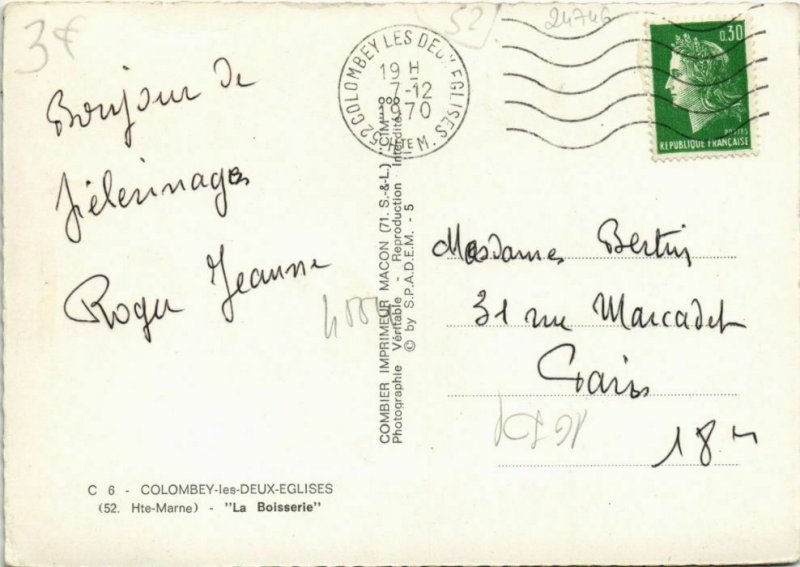 3€
52
24746
52 COLOMBEY LES DEUX EGLISES
19 H
7-12
1970
HTE M.
0,30
POSTES
REPUBLIQUE FRANÇAISE
Bonjour de
Pèlerinages
Roger Jeanne
COMBIER IMPRIMEUR MACON (71. S.-&-L.) "CIM"
Photographie Véritable - Reproduction Interdite
© by S.P.A.D.E.M. - 5
Mesdames Bertin
31 rue Marcadet
Paris
18
C 6 - COLOMBEY-les-DEUX-EGLISES
(52. Hte-Marne) - "La Boisserie"